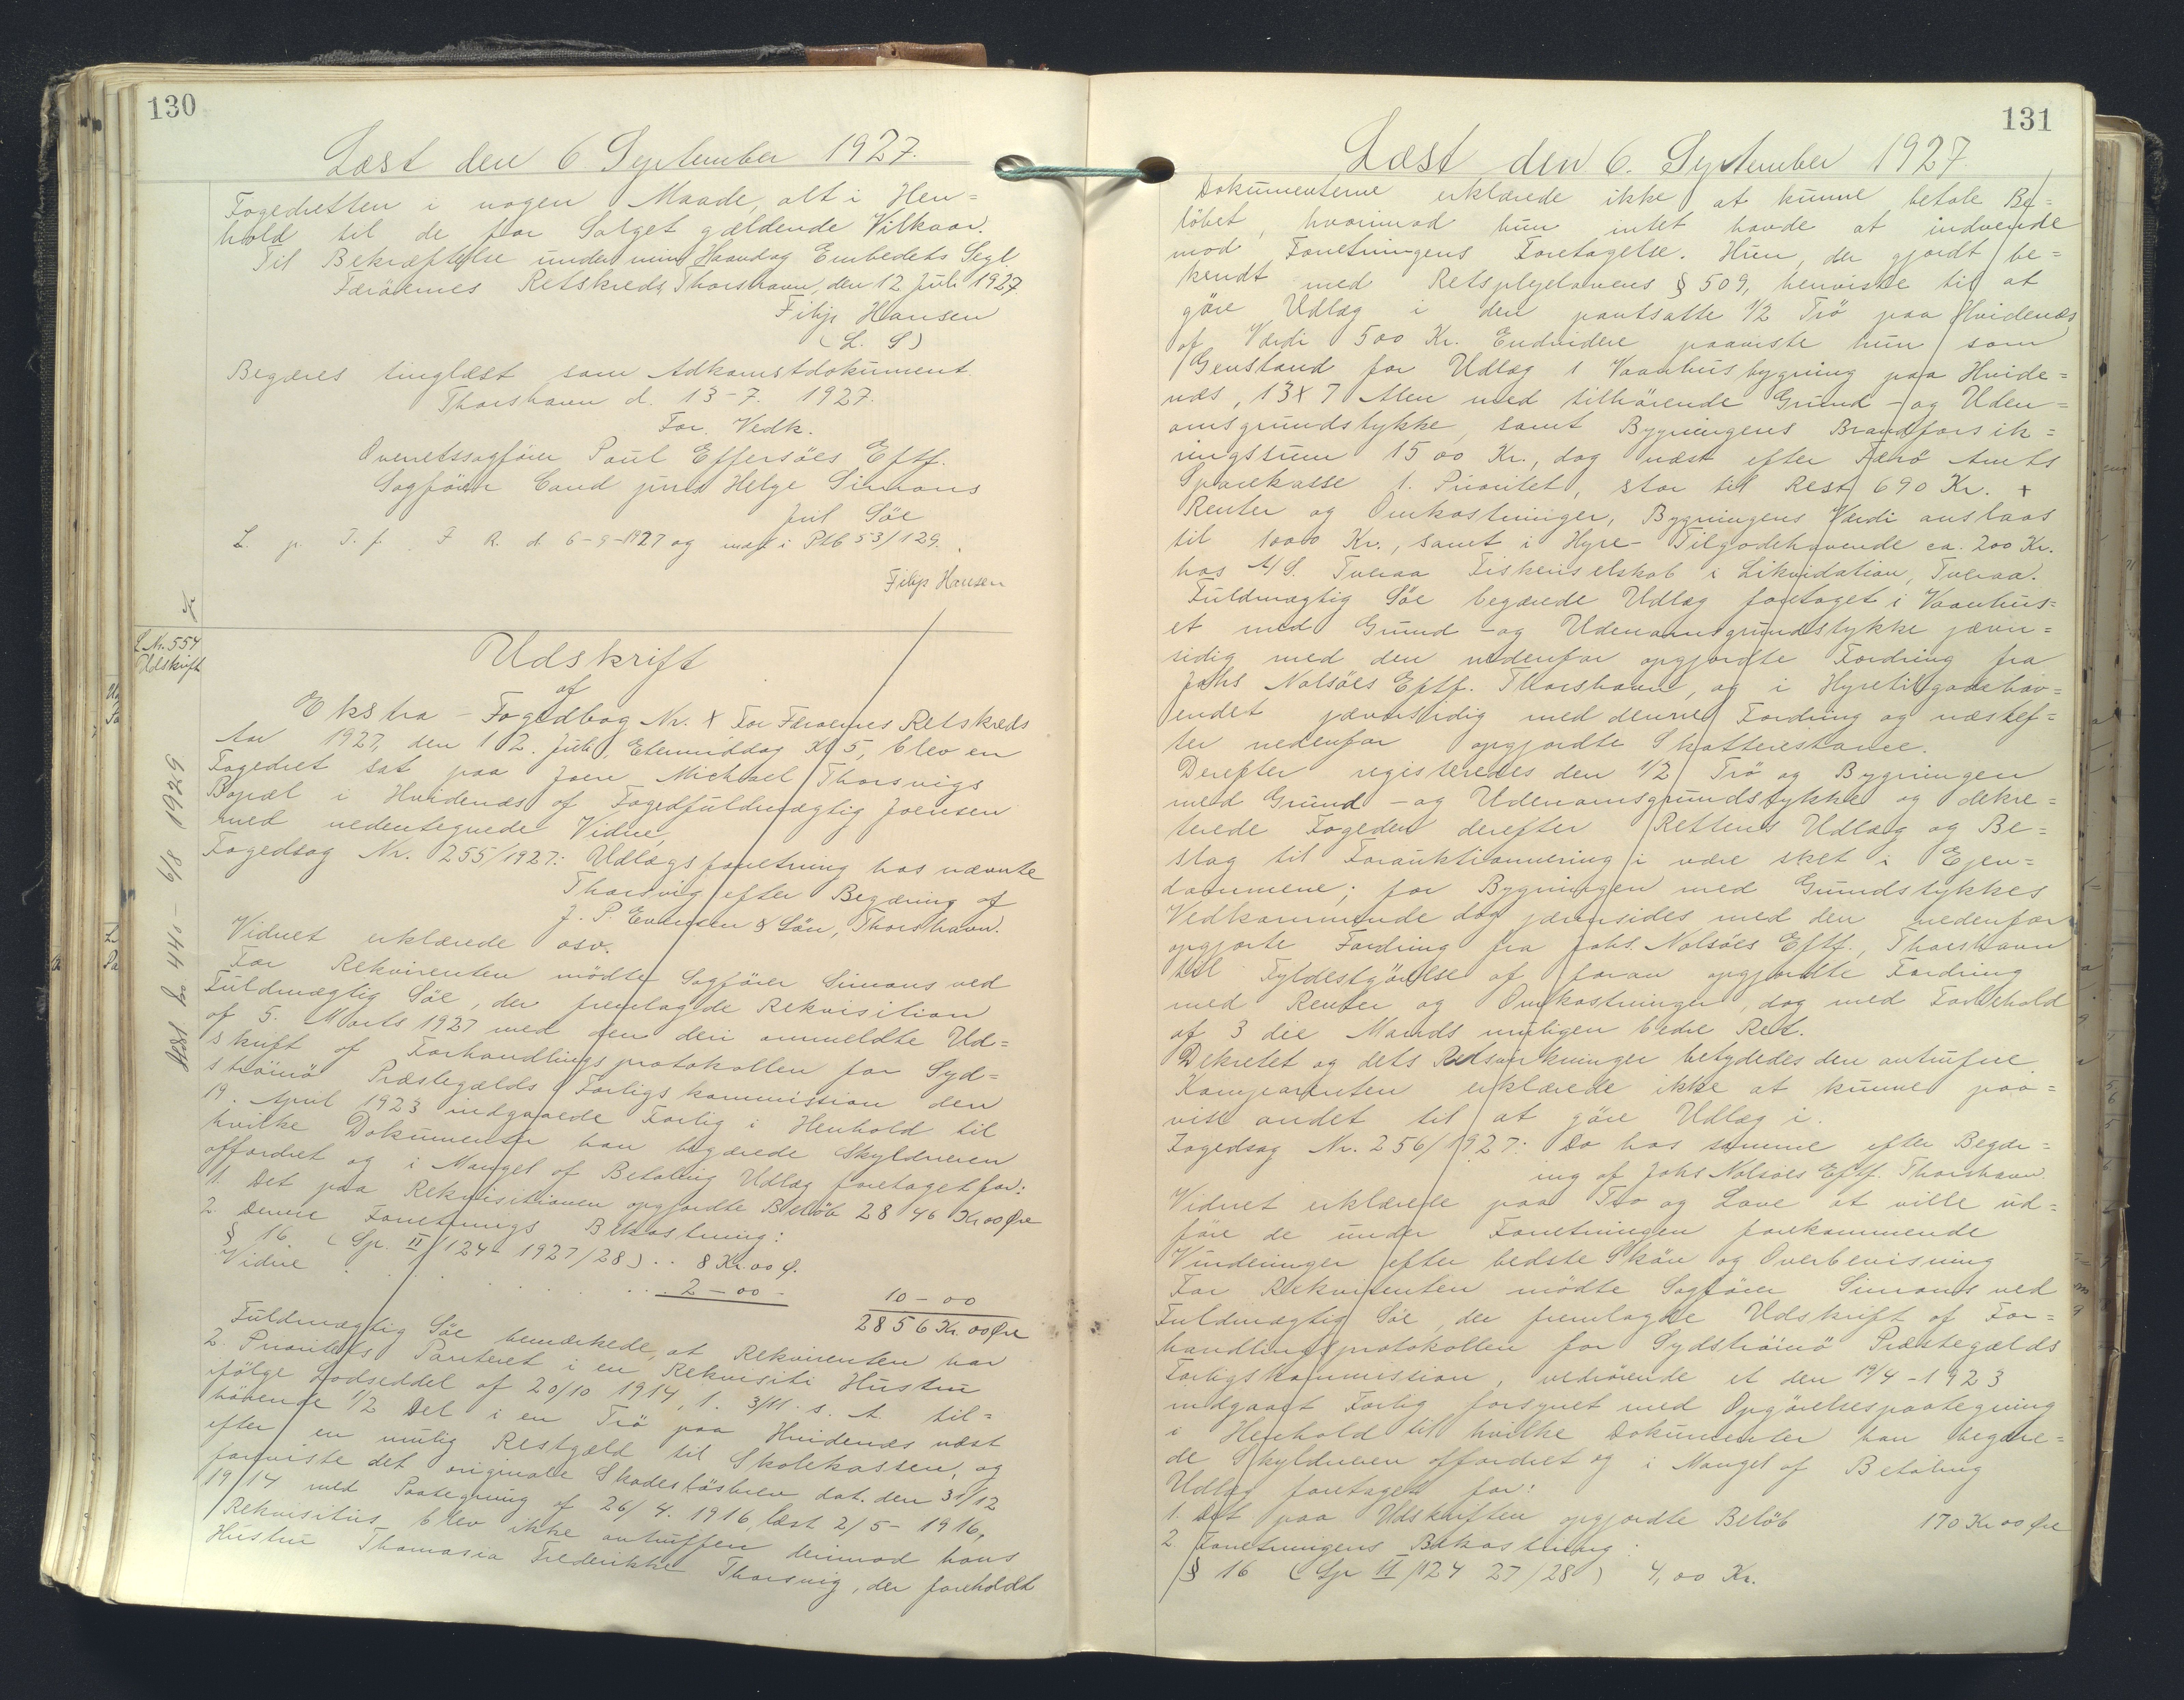 130
Læst den 6 September 1927.
Fogedretten i nogen Maade, alt i Hen=
hold til de for Salget gældende Vilkaar.
Til Bekræftelse under min Haand og Embedets Segl
Færöernes Retskreds, Thorshavn, den 12 Juli 1927
Filip Hansen
(L. S)
Begæres tinglæst som Adkomstdokument
Thorshavn d. 13-7. 1927.
For. Vedk.
Overretssagförer Poul Effersöes Eftf.
Sagförer Cand juris Helge Simons
Juil Söe
L. p. T. f. F R. d. 6-9-1927 og indf i Ptb 53/129.
Filip Hansen
L Nr. 554
Udskrift
Udskrift
af
Ekstra - Fogedbog Nr. X For Færoernes Retskreds
Aar 1927, den 12. Juli, Eftermiddag Kl 5, blev en
Fogedret sat paa Joen Michael Thorsvigs
Bopæl i Hvidenæs af Fogedfuldmægtig Joensen
med nedentegnede Vidne,
Fogedsag Nr. 255/1927: Udlægsforretning hos nævnte
Thorsvig efter Begæring af
J. P. Evensen & Sön, Thorshavn.
Vidnet erklærede osv.
For Rekvirenten mödte Sagförer Simons ved
Fuldmægtig Söe, der fremlagde Rekvisition
af 5. Marts 1927 med den deri ommeldte Ud=
skrift af Forhandlingsprotokollen for Syd=
strömö Præstegælds Forligskommission den
19. April 1923 indgaaede Forlig i Henhold til
hvilke Dokumenter han begærede Skyldneren
opfordret og i Mangel af Betaling Udlæg foretaget for:
1. Det paa Rekvisitionen opgjordte Belöb 2846 Kr 00 Øre
2. Denne Forretnings Bekostning:
§ 16 (Sp. II/124 - 1927/28) .. 8 Kr. 00 Ø.
Vidne . . . . . 2 - 00 - 10 - 00
2856 Kr. 00 Øre
Fuldmægtig Söe bemærkede, at Rekvirenten har
2. Prioritets Panteret i en Rekvisiti Hustru
ifölge Lodseddel af 20/10 1914, l. 3/11. s. A. til=
hörende 1/2 Del i en Trö paa Hvidenæs næst
efter en mulig Restgæld til Skolekassen, og
forviste det originale Skadeslösbrev dat. den 31/12
1914 med Paategning af 26/4. 1916, læst 2/5 - 1916,
Rekvisitus blev ikke antruffen derimod hans
Hustru Thomasia Frederikke Thorsvig, der foreholdt
Aflæst Lp 440 - 6/8 1929
131
Læst den 6. September 1927.
Dokumenterne erklærede ikke at kunne betale Be=
löbet, hvorimod hun intet havde at indvende
mod Forretningens Foretagelse. Hun, der gjordt be=
kendt med Retsplejelovens § 509, henviste til at
göre Udlæg i den pantsatte 1/2 Trö paa Hvidenæs,
af Værdi 500 Kr. Endvidere paaviste hun som
Genstand for Udlæg 1 Vaanhusbygning paa Hvide=
næs, 13 x 7 Alen med tilhörende Grund - og Uden=
omsgrundstykke, samt Bygningens Brandforsik=
ringssum 1500 Kr., dog næst efter Færö Amts
Sparekasse 1. Prioritet, stor til Rest 690 Kr. +
Renter og Omkostninger, Bygningens Værdi anslaas
til 1000 Kr., samt i Hyre- Tilgodehavende ca. 200 Kr.
hos A/S. Tveraa Fiskeriselskab i Likvidation, Tveraa.
Fuldmægtig Söe begærede Udlæg foretaget i Vaanhus=
et med Grund - og Udenomsgrundstykke jævn=
sidig med den nedenfor opgjordte Fordring fra
Johs Nolsöes Eftf. Thorshavn, og i Hyretilgodehav=
endet jævnsidig med denne Fordring og næstef=
ter nedenfor opgjordte Skatterestance.
Derefter registreredes den 1/2 Trö og Bygningen
med Grund - og Udenomsgrundstykke og dekre=
terede Fogeden derefter Rettens Udlæg og Be=
slag til Forauktionnering i være sket i Ejen=
dommene; for Bygningen med Grundstykkes
Vedkommende dog jævnsides med den nedenfor
opgjorte Fordring fra Johs. Nolsöes Eftf., Thorshavn
til Fyldestgörelse af foran opgjordte Fordring
med Renter og Omkostninger, dog med Forbehold
af 3 die Mands muligen bedre Ret.
Dekretet og dets Retsvirkninger betydedes den antrufne.
Komparenten erklærede ikke at kunne paa=
vise andet til at göre Udlæg i.
Fogedsag Nr. 256/1927: Do hos samme efter Begær=
ing af Johs Nolsöes Eftf. Thorshavn.
Vidnet erklærede paa Tro og Love at ville ud=
före de under Forretningen forekommende
Vurderinger efter bedste Skön og Overbevisning
For Rekvirenten mödte Sagförer Simons ved
Fuldmægtig Söe, der fremlagde Udskrift af For=
handlingsprotokollen for Sydströmö Præstegælds
Forligskommission, vedrörende et den 19/4 - 1923
indgaaet Forlig forsynet med Opgörelsespaategning
i Henhold til hvilke Dokumenter han begære=
de Skyldneren opfordret og i Mangel af Betaling
Udlæg foretaget for:
1. Det paa Udskriften opgjordte Belöb 170 Kr 00 Øre
2. Forretningens Bekostning:
§ 16 (Sp II/124 27/28) 4,00 Kr.